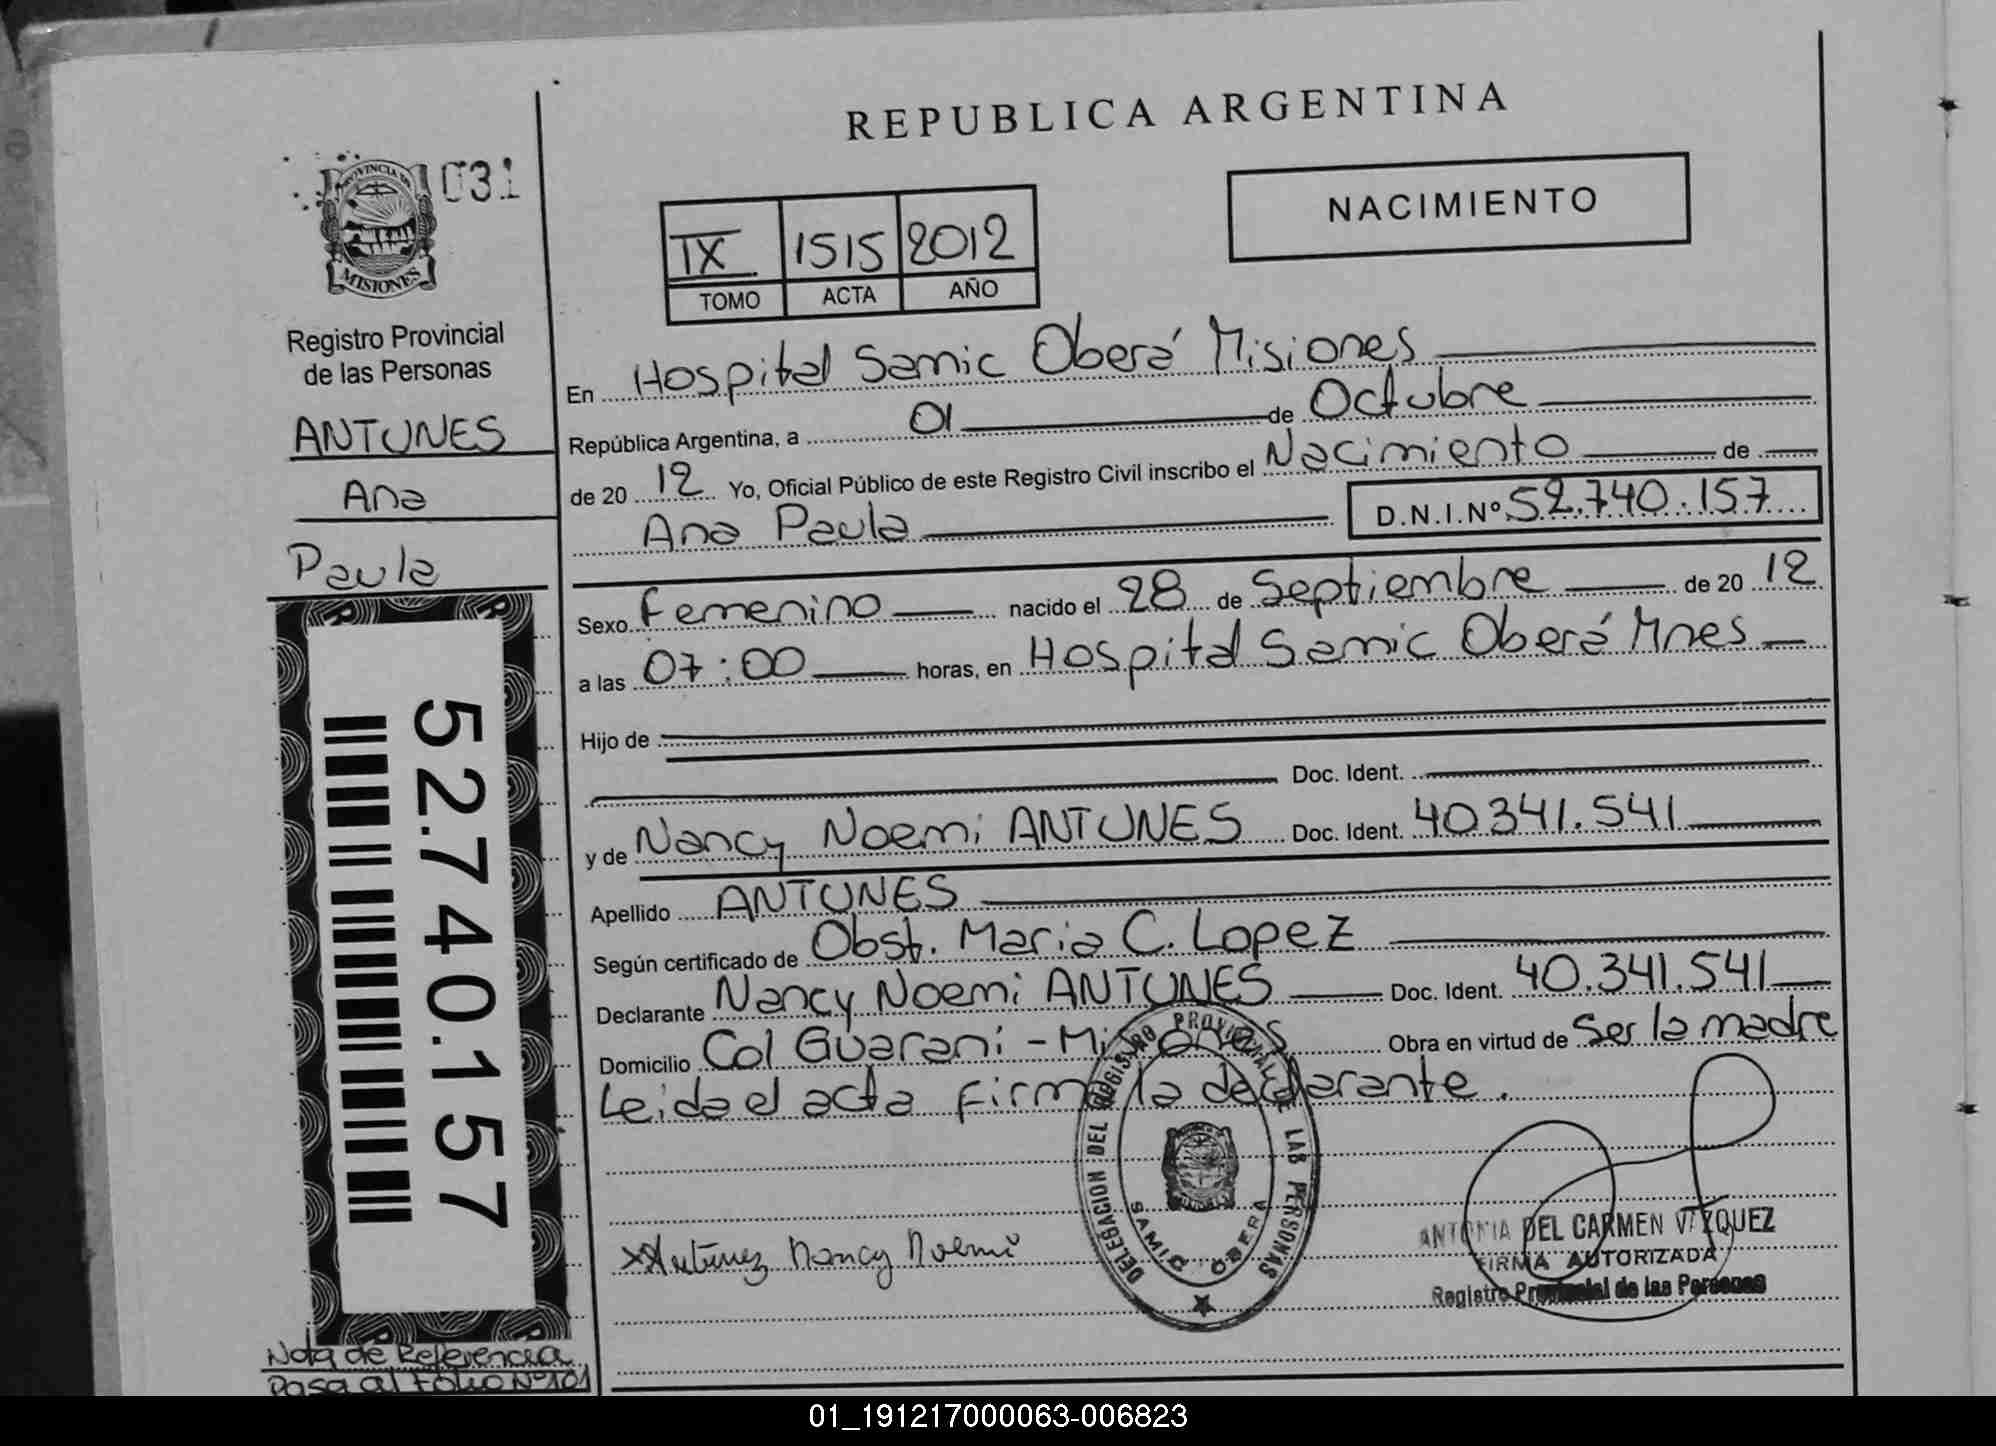 REPUBLICA ARGENTINA
PROVINCIA DE
MISIONES
031
Registro Provincial
de las Personas
ANTUNES
Ana
Paula
52.740.157
Nota de Referencia
Pasa al Folio Nº 101
IX 1515 2012
TOMO ACTA AÑO
NACIMIENTO
En Hospital Samic Oberá Misiones
República Argentina, a 01 de Octubre
de 20 12 Yo, Oficial Público de este Registro Civil inscribo el Nacimiento de
Ana Paula D.N.I.Nº 52.740.157
Sexo Femenino nacido el 28 de Septiembre de 20 12
a las 07:00 horas, en Hospital Samic Oberá Mnes
Hijo de
Doc. Ident.
y de Nancy Noemi ANTUNES Doc. Ident. 40341.541
Apellido ANTUNES
Según certificado de Obst. Maria C. Lopez
Declarante Nancy Noemi ANTUNES Doc. Ident. 40.341.541
Domicilio Col Guarani - Misiones Obra en virtud de Ser la madre
Leida el acta firma la declarante.
DELEGACION DEL REGISTRO PROVINCIAL DE LAS PERSONAS
SAMIC OBERA
xAntunez Nancy Noemi
ANTONIA DEL CARMEN VAZQUEZ
FIRMA AUTORIZADA
Registro Provincial de las Personas
01_191217000063-006823